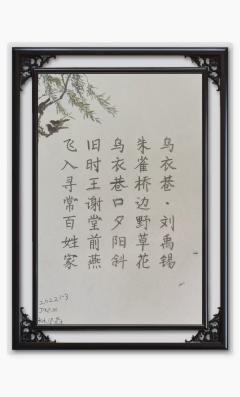 乌衣巷·刘禹锡
朱雀桥边野草花
乌衣巷口夕阳斜
旧时王谢堂前燕
飞入寻常百姓家